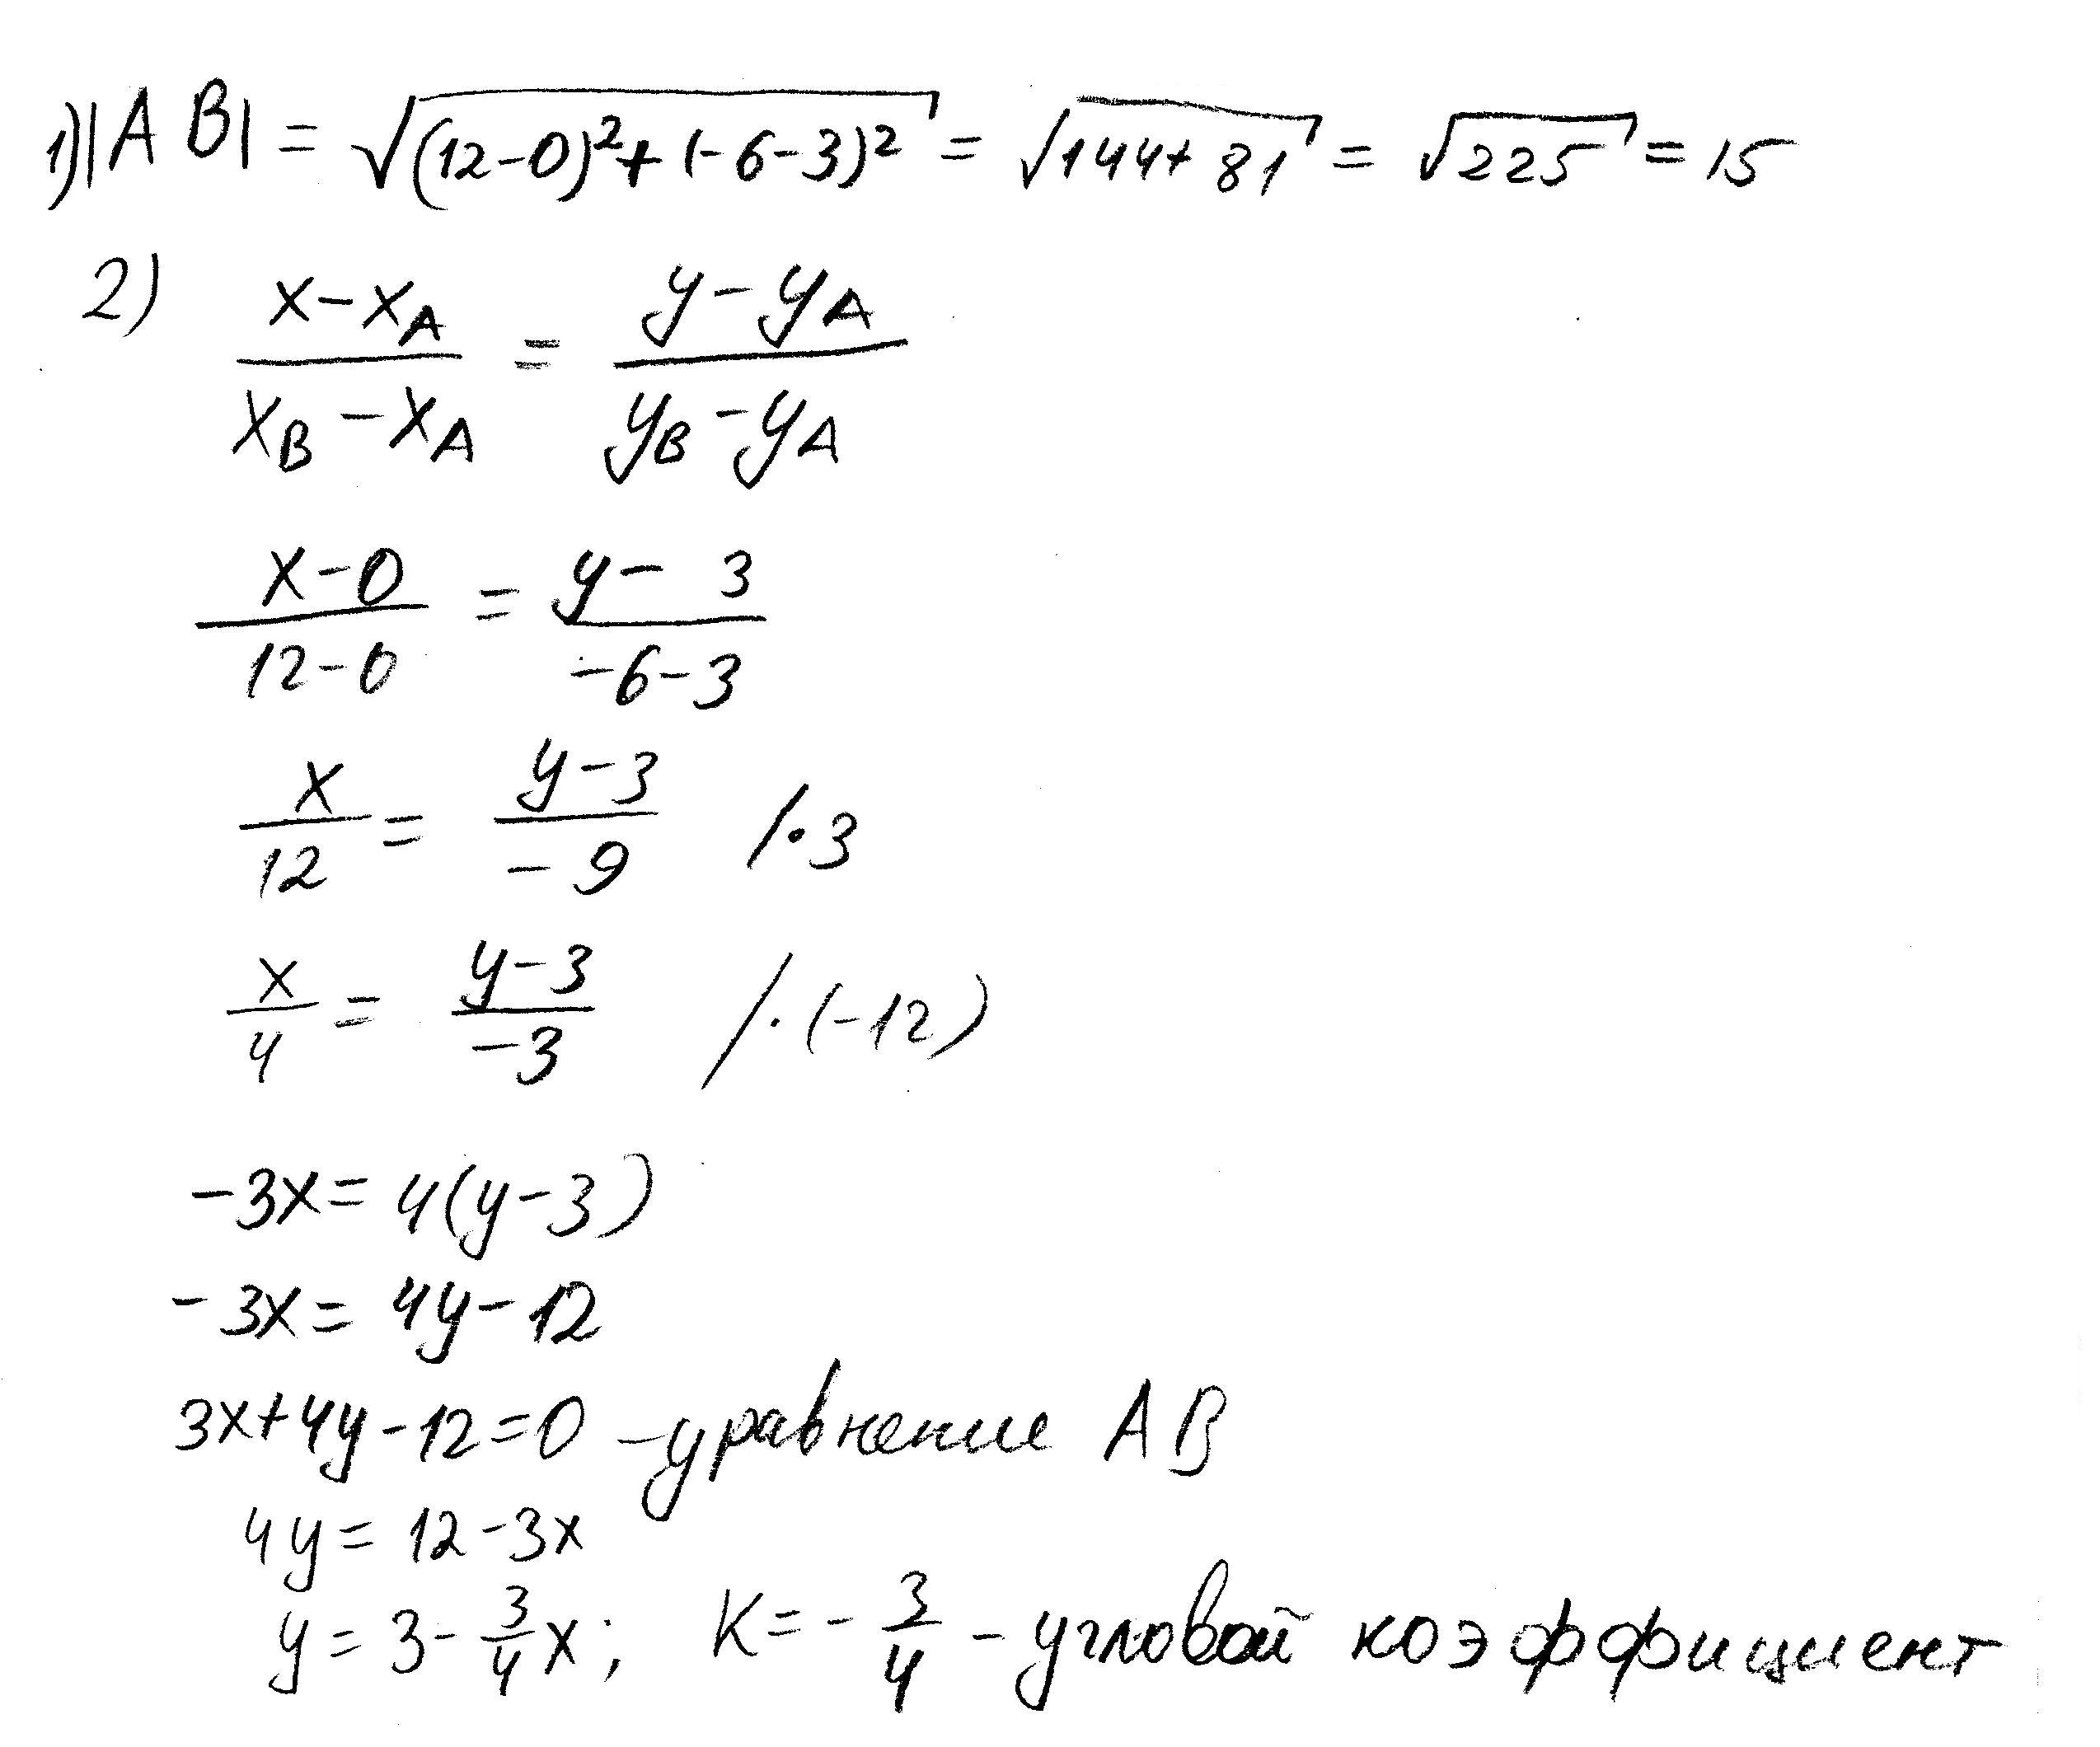 1) |AB| = √((12-0)²+(-6-3)²) = √(144+81) = √225 = 15
2) (x-x_A)/(x_B-x_A) = (y-y_A)/(y_B-y_A)
(x-0)/(12-0) = (y-3)/(-6-3)
x/12 = (y-3)/(-9) /·3
x/4 = (y-3)/(-3) /·(-12)
-3x = 4(y-3)
-3x = 4y-12
3x+4y-12=0 - уравнение AB
4y = 12-3x
y = 3 - 3/4 x; K = -3/4 - угловой коэффициент